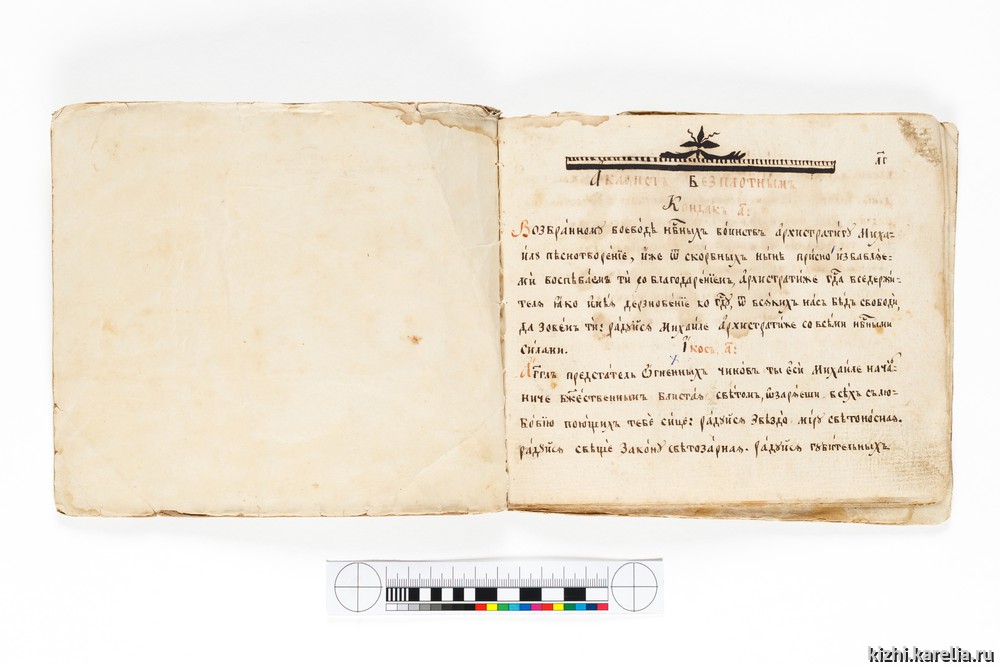 л҃г
Акаѳистъ Безплотнымъ
Кондакъ а҃:
Возбра́нному воево́дѣ нб҃ныхъ во́инствъ а҆рхистрати́гу Миха=
и́лу пѣснотворе́нїе, и҆́же ѿ ско́рбныхъ ны́нѣ при́сно и҆збавлѧ́е=
ми воспѣва́емъ ти со благодаре́нїемъ, а҆рхистрати́же гд҃а вседержи́=
телѧ ꙗ҆́ко и҆мѣ́ѧ дерзнове́нїе ко гд҃у, ѿ всѧ́кихъ на́съ бѣ́дъ свободѝ,
да зове́мъ ти: ра́дуйсѧ Михаи́ле а҆рхистрати́же со всѣ́ми нб҃ными
си́лами.
І҆́косъ, а҃:
А҆́гг҃лъ предста́тель ѻ҆́гненныхъ чинѡ́въ ты̀ є҆сѝ Михаи́ле нача́л=
ниче бж҃е́ственнымъ блиста́ѧ свѣ́томъ, ѡ҆зарѧ́еши всѣ́хъ съ лю=
бо́вїю пою́щихъ тебѣ̀ си́це: ра́дуйсѧ звѣздо̀ мі́ру свѣтоно́снаѧ.
ра́дуйсѧ свѣщѐ зако́ну свѣтоза́рнаѧ. ра́дуйсѧ губи́тельныхъ
kizhi.karelia.ru